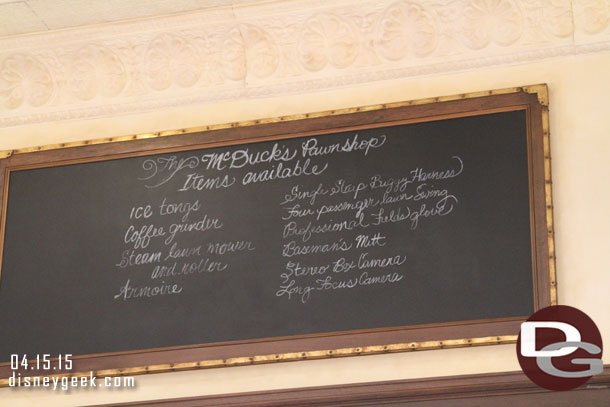 McDuck's Pawnshop
Items available
Ice tongs
Coffee grinder
Steam lawn mower
and roller
Armoire
Single Strap Buggy Harness
Four passenger lawn Swing
Professional Fields glove
Baseman's Mitt
Stereo Box Camera
Long Focus Camera
04.15.15
disneygeek.com
DG